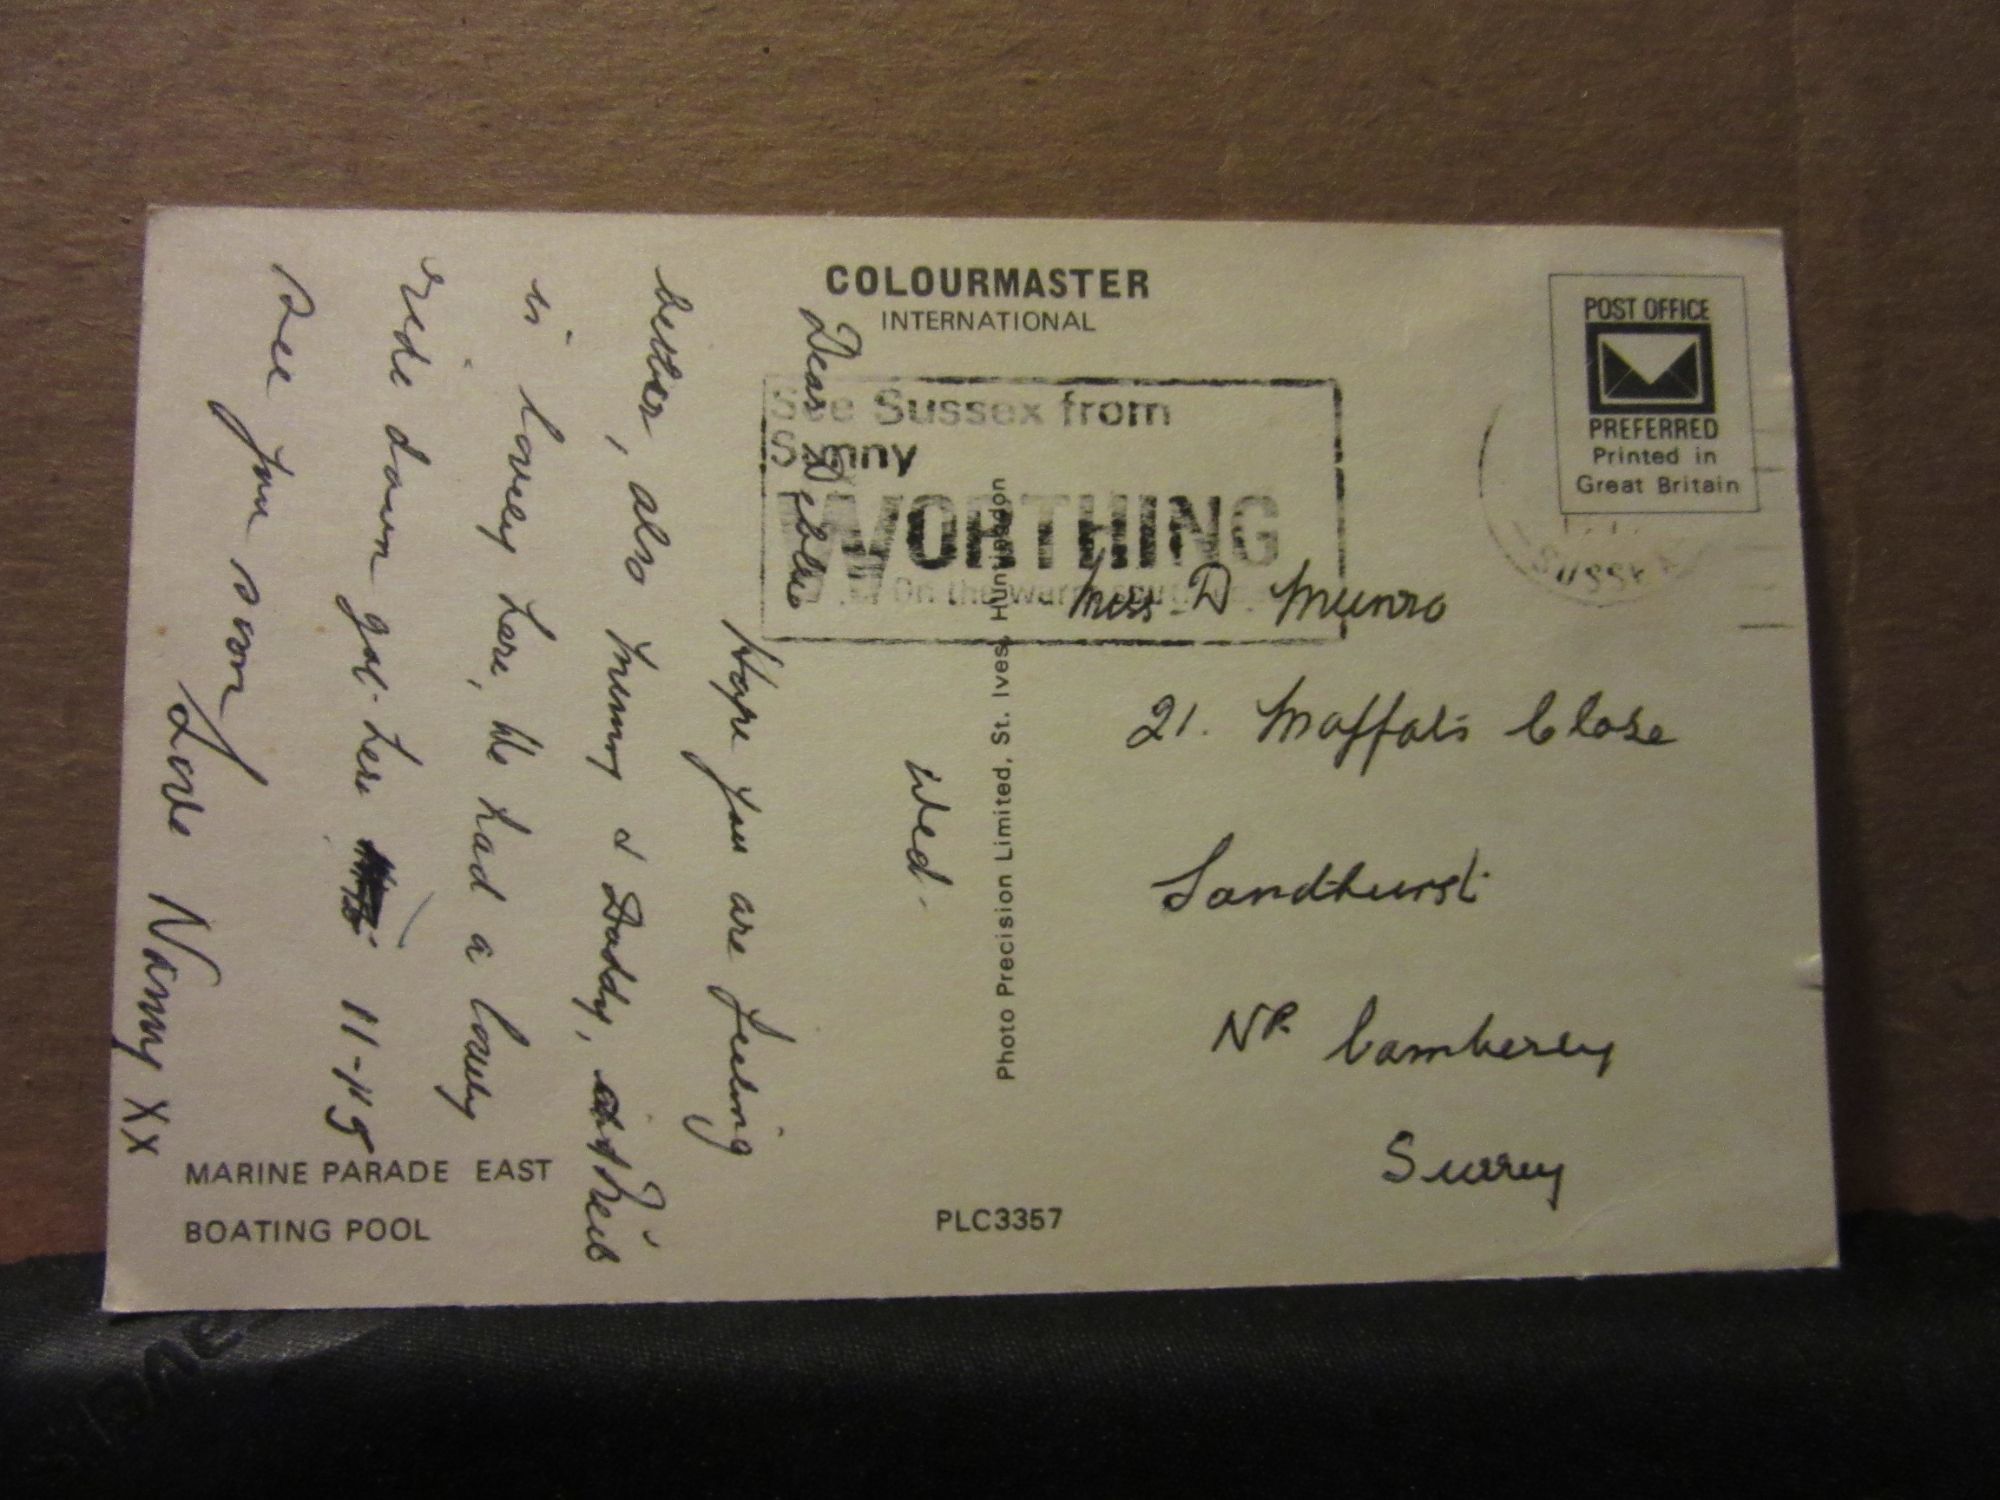 COLOURMASTER
INTERNATIONAL
POST OFFICE
PREFERRED
Printed in
Great Britain
See Sussex from
Sunny
WORTHING
On the warm
SUSSEX
Wed.
Dear Debbie
Hope you are feeling
better, also Mummy & Daddy,
is lovely here, We had a lovely
ride down got here 11-15
See you soon
Love Nanny XX
Photo Precision Limited, St. Ives, Huntingdon
Miss D Munro
21. Moffats Close
Sandhurst
Nr. Camberley
Surrey
MARINE PARADE EAST
BOATING POOL
PLC3357